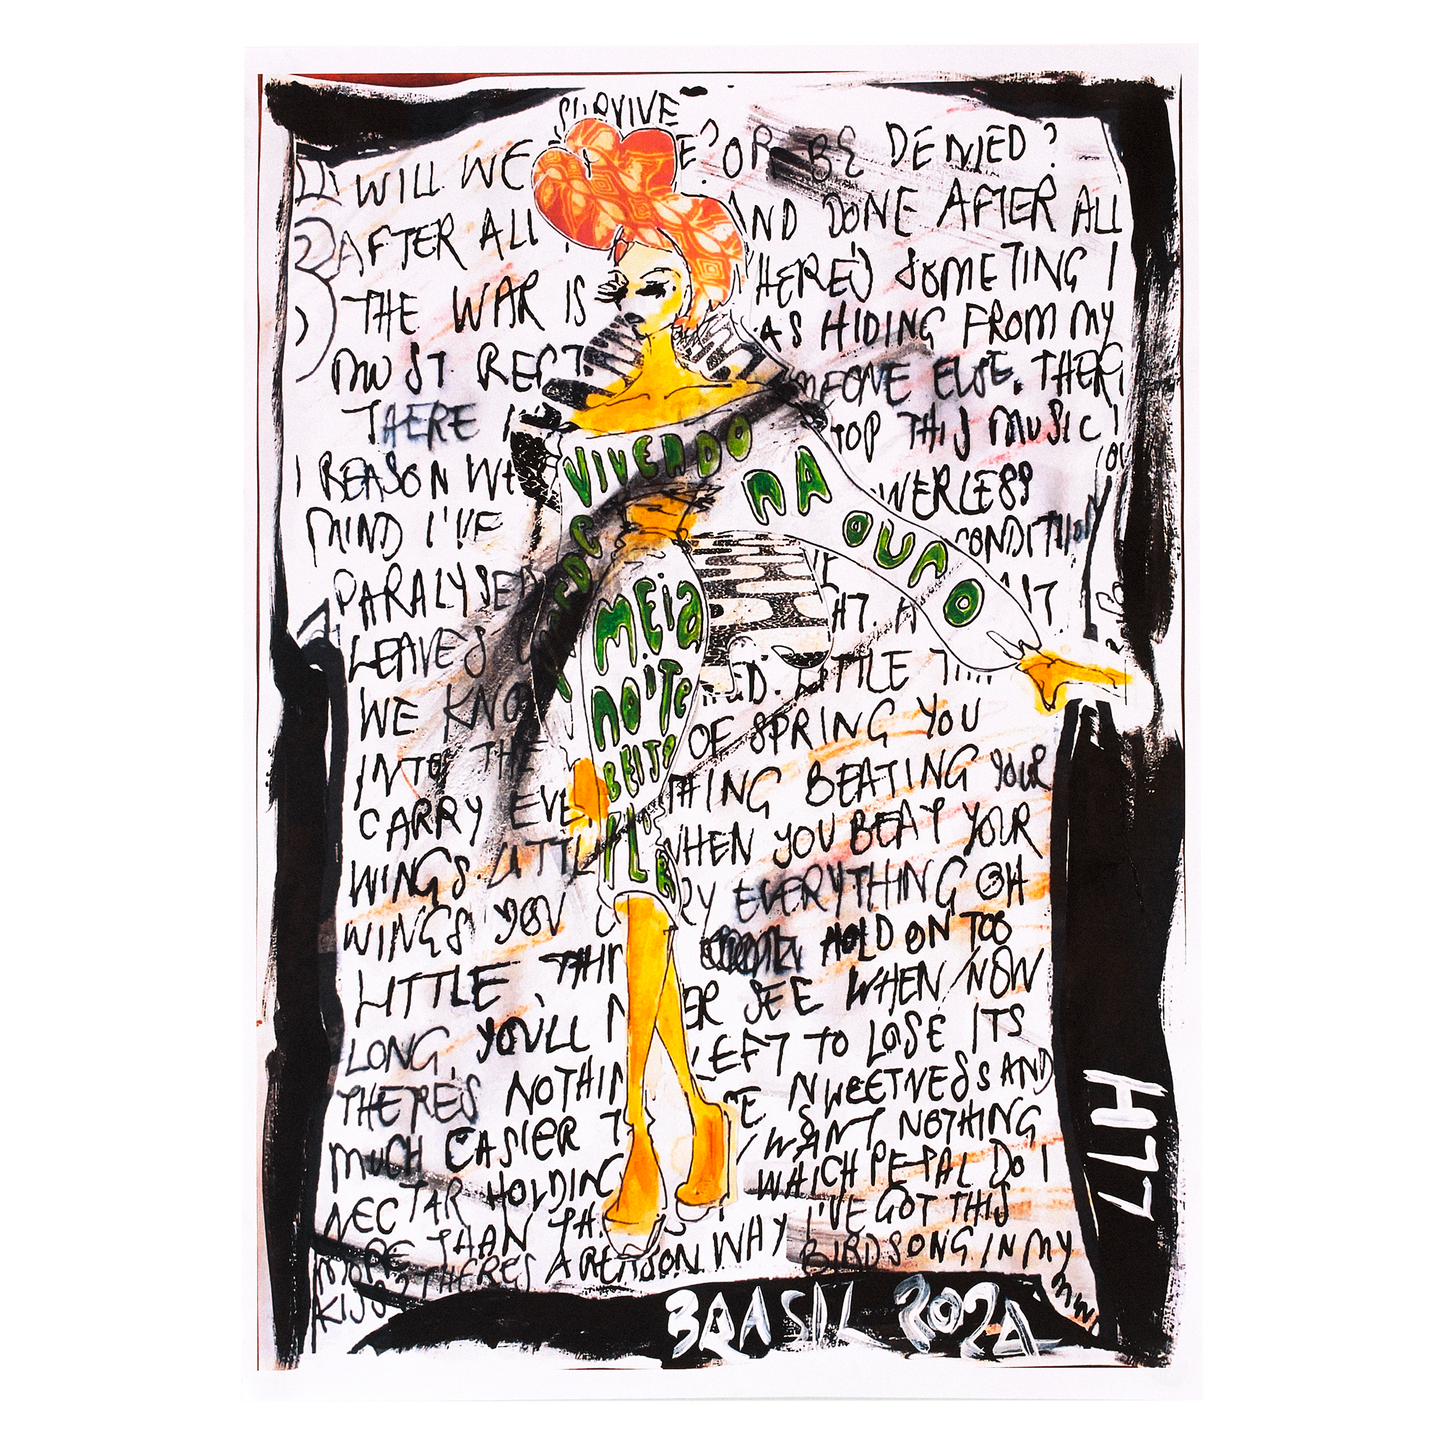 SURVIVE
WILL WE E? OR BE DENIED?
AFTER ALL AND DONE AFTER ALL
THE WAR IS HERE'S SOMETING I
MUST REC AS HIDING FROM MY
THERE I MEONE ELSE. THER
TOP THIS MUSIC
I REASON WH WERLESS
MIND I'VE CONDITION
PARALYSED
LEAVES H7.
WE KNO D. LITTLE
INTO THE OF SPRING YOU
CARRY EVE THING BEATING YOUR
WINGS. LITTL WHEN YOU BEAT YOUR
WINGS YOU RY EVERYTHING OH
LITTLE THI HOLD ON TOO
LONG. YOU'LL N ER SEE WHEN NOW
THERE'S NOTHIN LEFT TO LOSE ITS
MUCH EASIER SWEETNESS AND
NECTAR HOLDING WANT NOTHING
MORE THAN TH WHICH PETAL DO I
KISS THERES A REASON WHY I'VE GOT THIS
BIRDSONG IN MY
MIN
VIVENDO
NA
OUAO
MEIA
NOITE
BEIJO
H77
BRASIL 2024